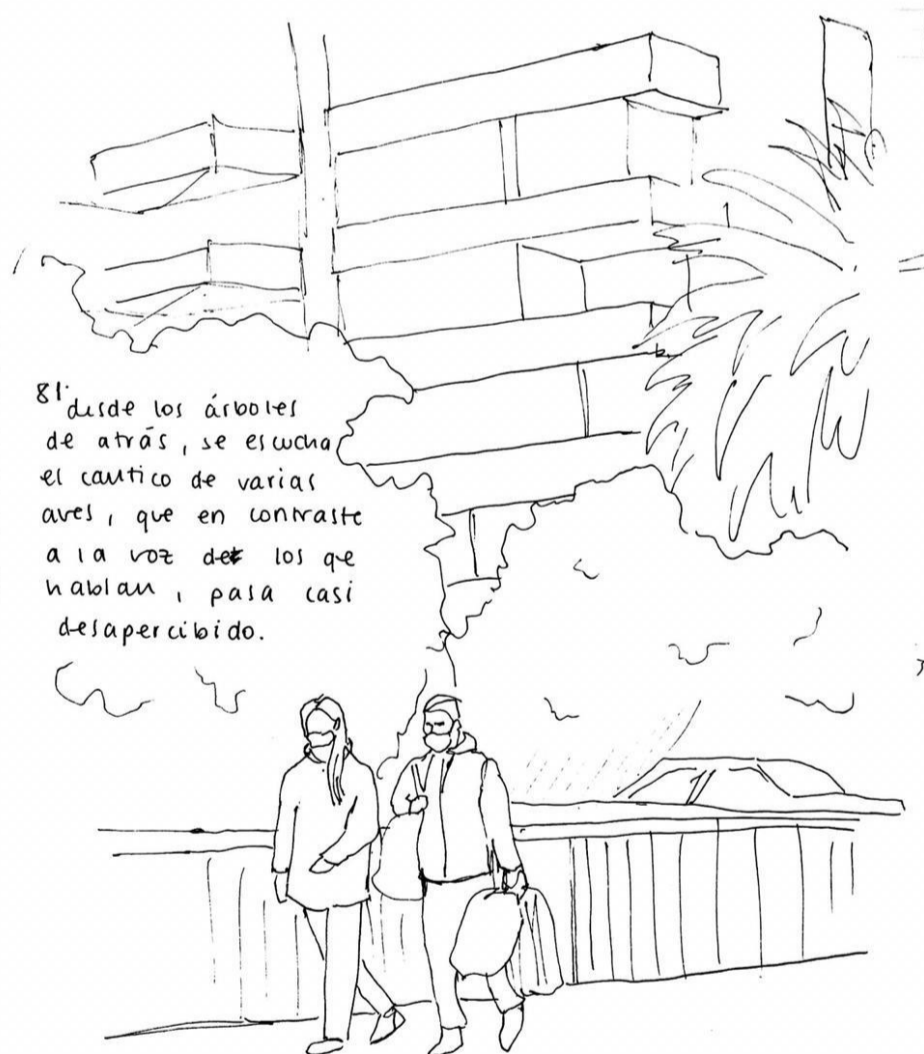 81. desde los árboles
de atrás, se escucha
el cantico de varias
aves, que en contraste
a la voz de los qe
hablan, pasa casi
desapercibido.